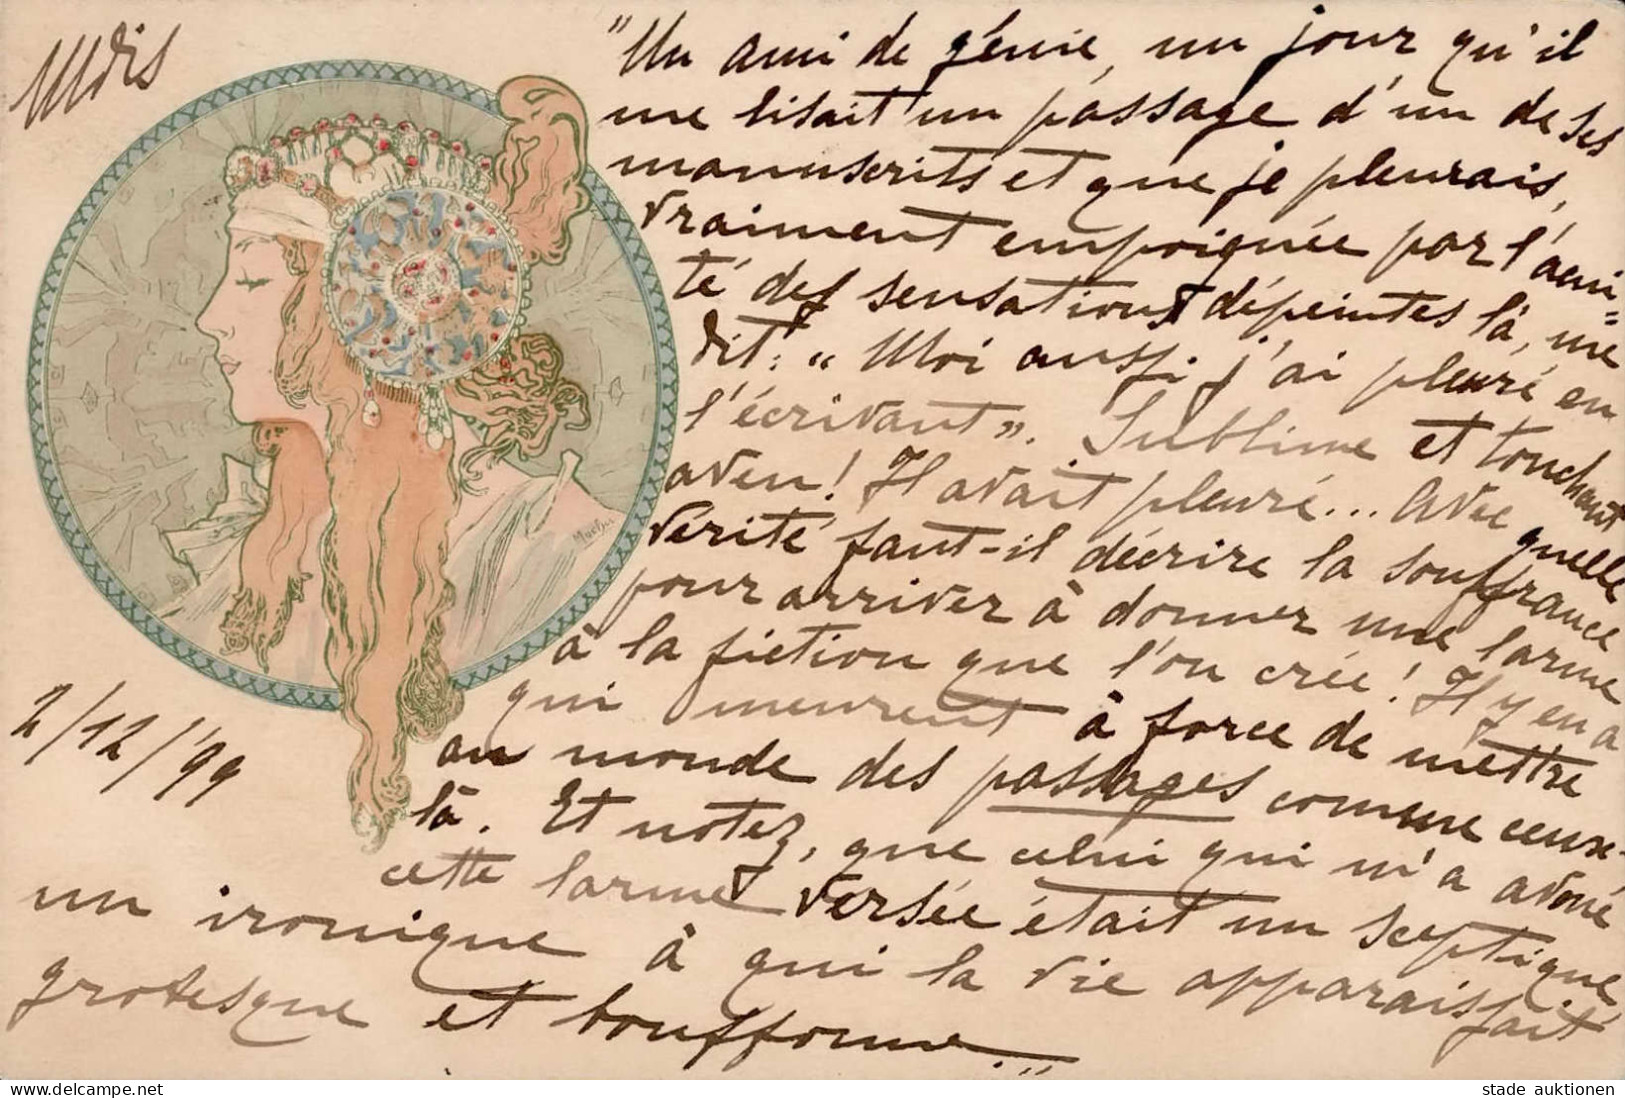 "Un ami de génie, un jour qu'il
me lisait un passage d'un de ses
manuscrits et que je pleurais,
vraiment empoignée par l'acui-
té des sensations dépeintes là, me
dit: "Moi aussi j'ai pleuré en
l'écrivant". Sublime et touchant
aveu! Il avait pleuré... Avec quelle
vérité faut-il décrire la souffrance
pour arriver à donner une larme
à la fiction que l'on crée! Il y en a
qui meurent à force de mettre
au monde des passages comme ceux-
là. Et notez, que celui qui m'a avoué
cette larme versée était un sceptique
un ironique à qui la vie apparaissait
grotesque et bouffonne."
2/12/'99
Mucha
www.delcampe.net
stade auktionen